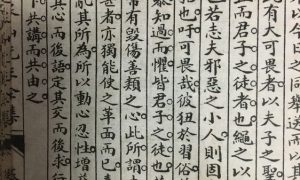 有大可畏者以夫子之聖
而君子之徒者也繩以
若志夫邪惡之小人則固
也吁可畏哉彼狃於習俗
知過而懼皆君子之徒也
常有毀傷善類之心此所謂
者亦獨能使之革面而已
亂其所為所以動心忍性增
其心而後語定其交而後求
下共講而共由之